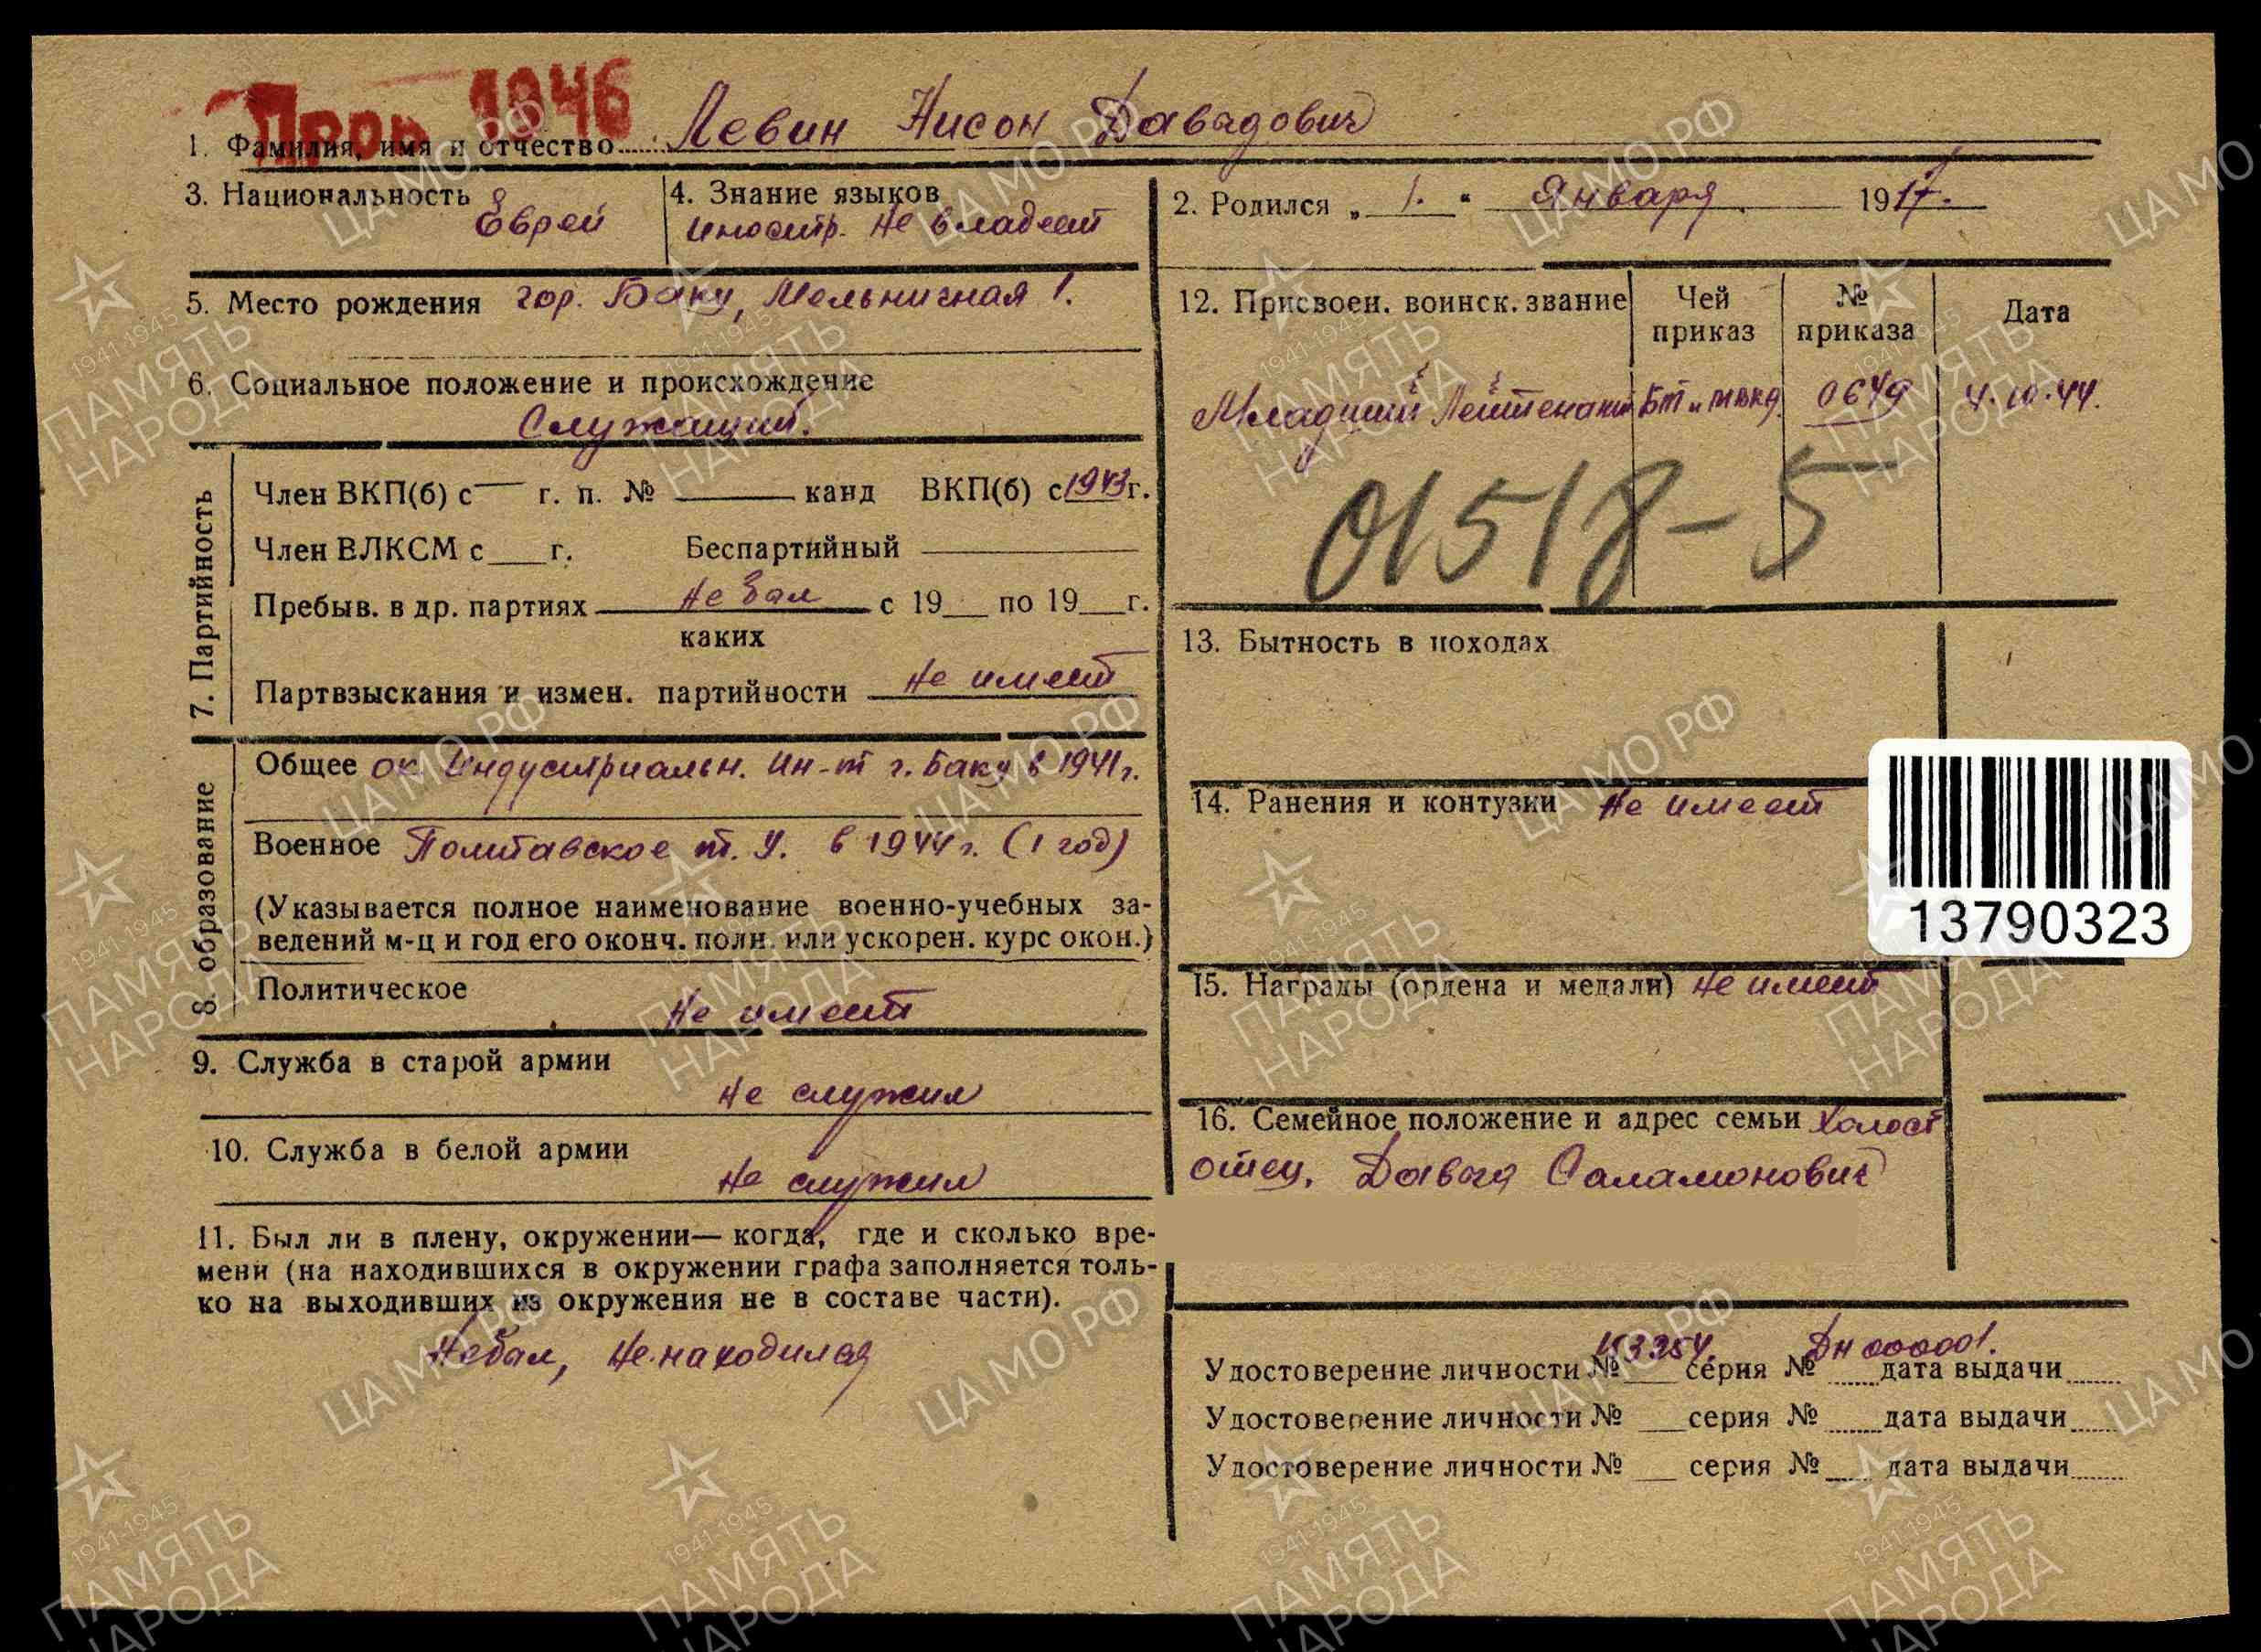 Пров 1946
1. Фамилия, имя и отчество Левин Нисон Давыдович
3. Национальность Еврей
4. Знание языков иностр. не владеет
2. Родился „ 1. “ Января 1917.
5. Место рождения гор. Баку, Мельничная 1.
6. Социальное положение и происхождение
Служащий.
7. Партийность
Член ВКП(б) с — г. п. № — канд ВКП(б) с 1943 г.
Член ВЛКСМ с г. Беспартийный
Пребыв. в др. партиях не был с 19 по 19 г.
каких
Партвзыскания и измен. партийности не имеет
8. образование
Общее ок. Индустриальн. Ин-т г. Баку в 1941 г.
Военное Полтавское т. У. в 1944 г. (1 год)
(Указывается полное наименование военно-учебных за-
ведений м-ц и год его оконч. полн. или ускорен. курс окон.)
Политическое не имеет
9. Служба в старой армии
не служил
10. Служба в белой армии
не служил
11. Был ли в плену, окружении— когда, где и сколько вре-
мени (на находившихся в окружении графа заполняется толь-
ко на выходивших из окружения не в составе части).
Не был, не находился
12. Присвоен. воинск. звание Чей приказ № приказа Дата
Младший Лейтенант БТ и МВКА 0649 4.10.44.
01518-5
13. Бытность в походах
14. Ранения и контузии не имеет
13790323
15. Награды (ордена и медали) не имеет
16. Семейное положение и адрес семьи Холост
отец. Давыд Саламонович
Удостоверение личности № 153354. серия № ДН 000001. дата выдачи
Удостоверение личности № серия № дата выдачи
Удостоверение личности № серия № дата выдачи
ЦА МО РФ
1941-1945
ПАМЯТЬ
НАРОДА